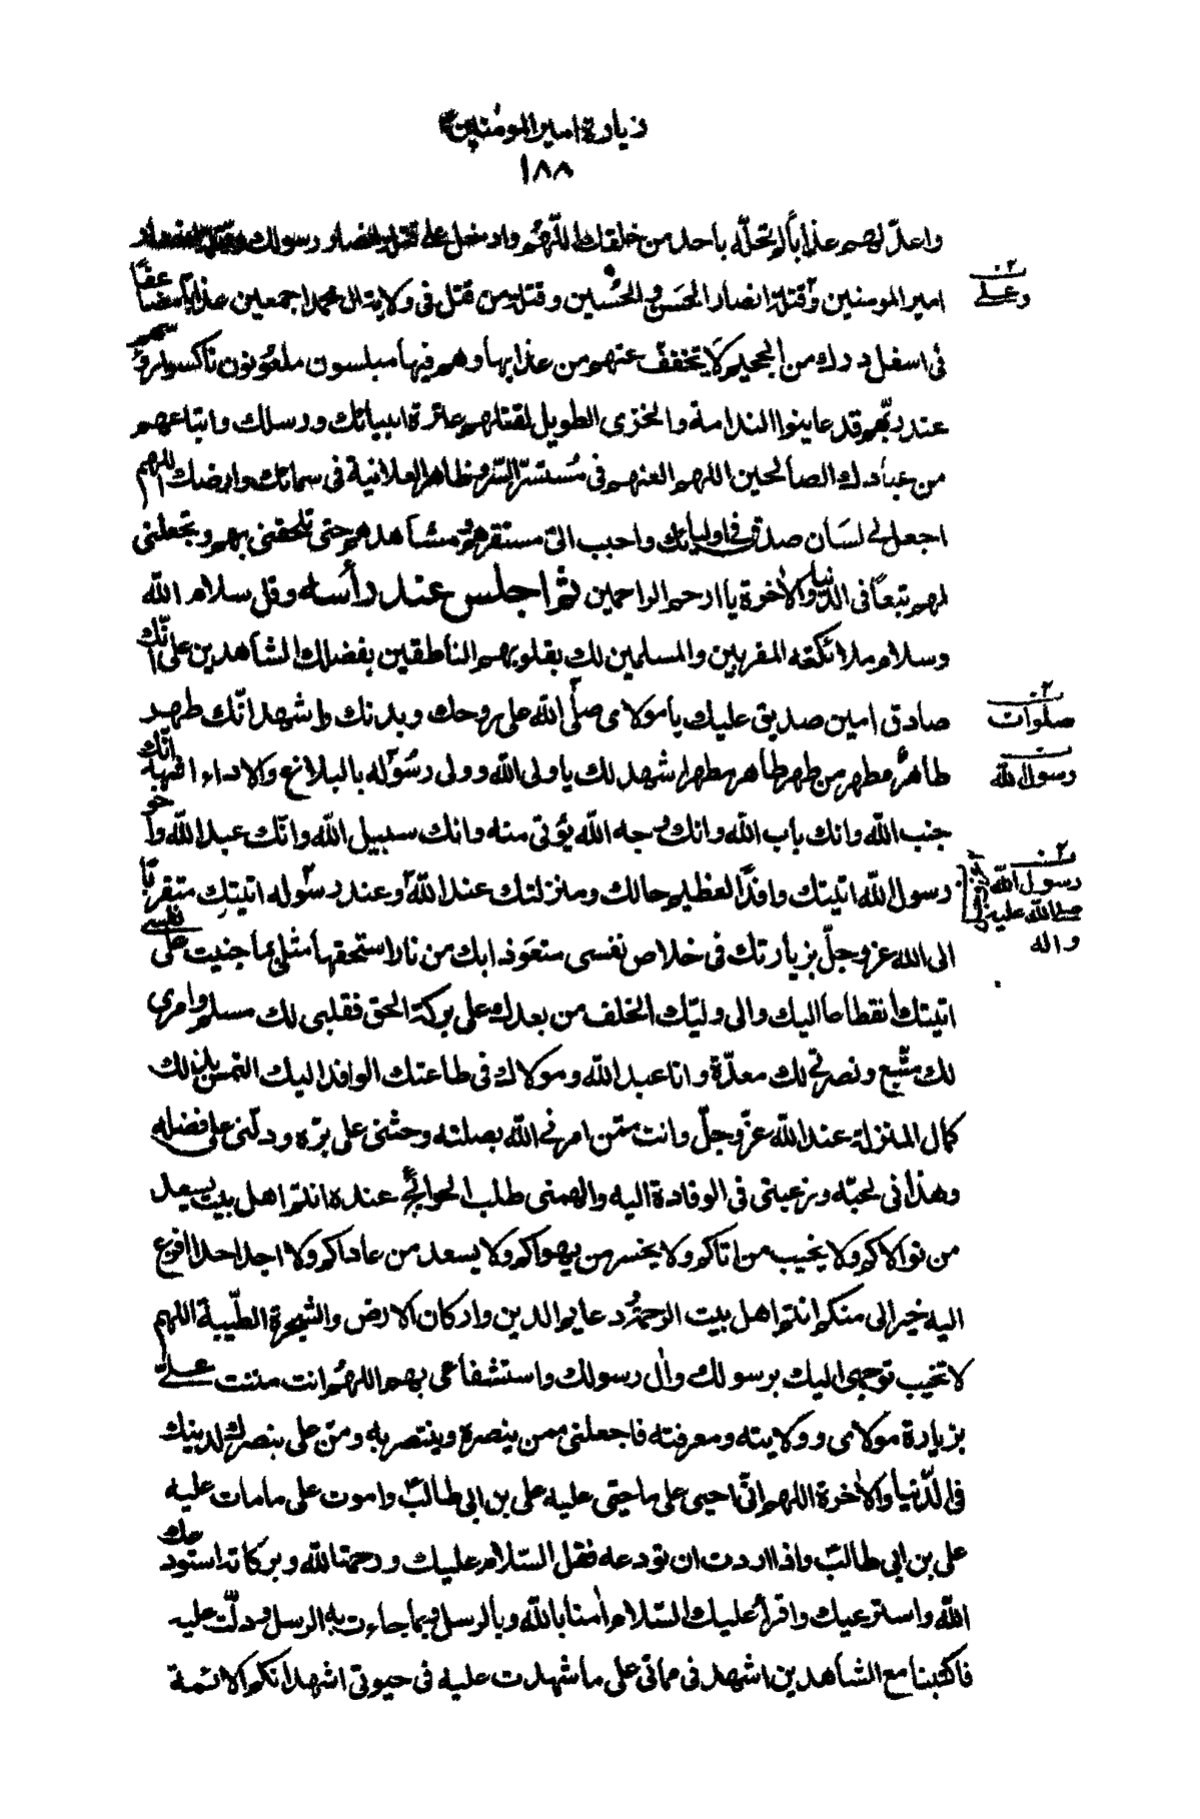 زيارة امير المؤمنين
١٨٨
واعدّ لهم عذاباً لم تحلّه باحد من خلقك اللّهم وادخل على قتلة انصار رسولك وقتلة انصار
امير المومنين وقتلة انصار الحسن والحسين وقتلة من قتل في ولاية ال محمد اجمعين عذاباً مضاعفاً
وعلى
في اسفل درك من الجحيم لا تخفف عنهم من عذابها وهم فيها مبلسون ملعونون ناكسوا رؤسهم
عند ربّهم قد عاينوا الندامة والخزى الطويل لقتلهم عترة انبيائك ورسلك واتباعهم
من عبادك الصالحين اللهم العنهم في مُستسرّ السّر وظاهر العلانية في سمائك وارضك اللهم
اجعل لي لسَان صدق في اوليائك واحبب الىّ مستقرهم ومشاهدهم حتى تلحقنى بهم وتجعلنى
لهم تبعاً فى الدنيا والآخرة يا ارحم الراحمين ثم اجلس عند رأسه وقل سلام اللّه
وسلام ملائكته المقربين والمسلمين لك بقلوبهم الناطقين بفضلك الشاهدين على انّك
صادق امين صديق عليك يا مولاى صلّى اللّه على روحك وبدنك واشهد انّك طهر
صلوات
طاهرٌ مطهر من طهر طاهر مطهر اشهد لك يا ولى اللّه وولى رسُوله بالبلاغ والاداء اشهد انّك
رسول اللّه
جنب اللّه وانك باب اللّه وانك وجه اللّه يؤتى منه وانك سبيل اللّه وانّك عبد اللّه واخو
رسول اللّه اتيتك وافداً لعظيم حالك ومنزلتك عند اللّه وعند رسوله اتيتك متقرباً
رسول اللّه
صلى اللّه عليه
واله
الى اللّه عز وجلّ بزيارتك فى خلاص نفسى متعوذا بك من نار استحقها مثلى بما جنيت على نفسى
اتيتك انقطاعا اليك والى وليّك الخلف من بعدك على بركة الحق فقلبى لك مسلم وامرى
لك متّبع ونصرتى لك معدّة وانا عبد اللّه ومولاك فى طاعتك الوافد اليك التمس بذلك
كمال المنزلة عند اللّه عزّ وجلّ وانت ممّن امرنى اللّه بصلته وحثنى على برّه ودلّنى على فضله
وهدانى لحبّه ورغبنى فى الوفادة اليه والهمنى طلب الحوائج عنده انتم اهل بيت يسعد
من تولاكم ولا يخيب من اتاكم ولا يخسر من يهواكم ولا يسعد من عاداكم ولا اجد احدا افزع
اليه خيرا لى منكم انتم اهل بيت الرحمة ودعايم الدين واركان الارض والشجرة الطّيبة اللهم
لا تخيب توجهى اليك برسولك وآل رسولك واستشفاعى بهم اللهم انت مننت علىّ
بزيارة مولاى وولايته ومعرفته فاجعلنى ممن ينصره وينتصر به ومنّ على بنصرك لدينك
فى الدّنيا والآخرة اللهم انّى احيى على ما حيّى عليه على بن ابى طالب واموت على ما مات عليه
على بن ابى طالب واذا اردت ان تودعه فقل السّلام عليك ورحمة اللّه وبركاته استودعك
اللّه واسترعيك واقرأ عليك السّلام آمنا باللّه وبالرسل وبما جاءت به الرسل ودلّت عليه
فاكتبنا مع الشاهدين اشهد فى مماتى على ما شهدت عليه فى حيوتى اشهد انكم الائمة